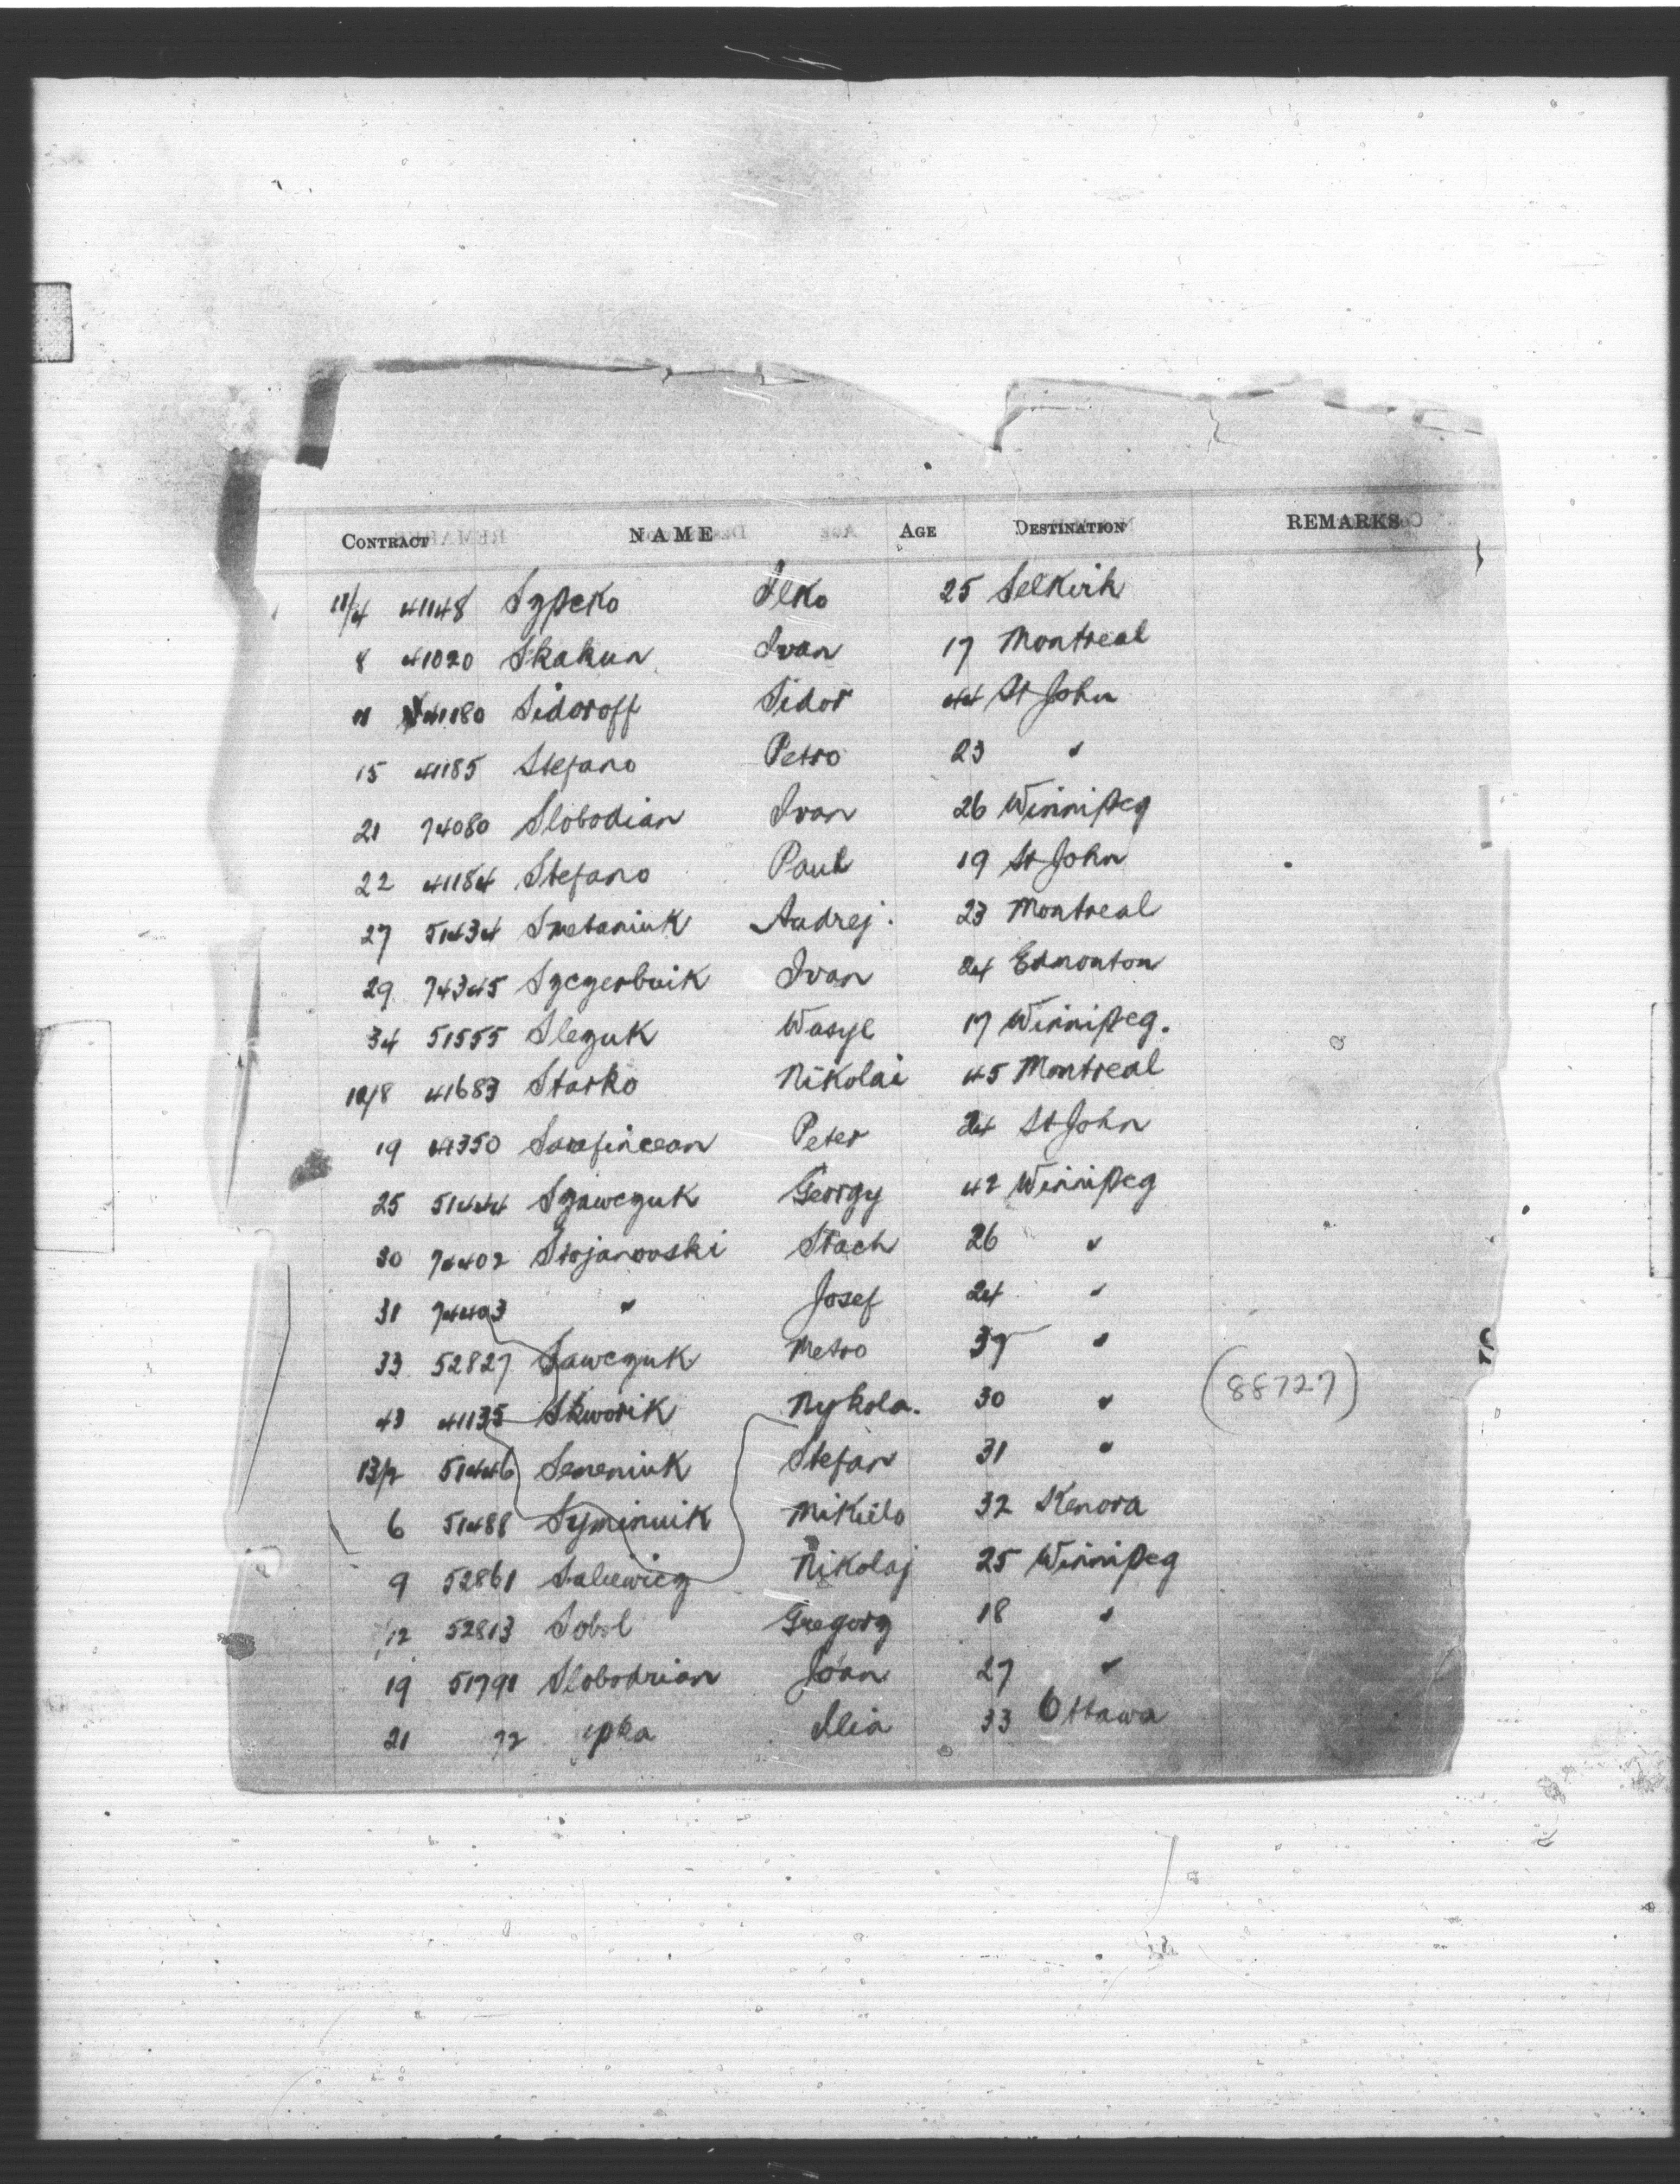 CONTRACT NAME AGE DESTINATION REMARKS
11/4 41148 Sypeko Ilko 25 Selkirk
8 41020 Skakun Ivan 17 Montreal
11 41180 Sidoroff Sidor 44 St John
15 41185 Stefano Petro 23 "
21 74080 Slobodian Ivan 26 Winnipeg
22 41184 Stefano Paul 19 St John
27 51434 Smetaniuk Andrej. 23 Montreal
29 74345 Szczerbuik Ivan 24 Edmonton
34 51555 Sleguk Wasyl 17 Winnipeg.
12/8 41683 Starko Nikolai 45 Montreal
19 Peter 24 St John
25 51444 Szawczuk Georgy 42 Winnipeg
30 74402 Stojanovski Stach 26 "
31 74403 " Josef 24 "
33 52827 Sawczuk Metro 37 "
43 41135 Skworik Nykola. 30 " (88727)
13/2 51446 Semeniuk Stefan 31 "
6 51488 Syminuik Mikielo 32 Kenora
9 52861 Saliewicz Nikolaj 25 Winnipeg
12 52813 Sobol Gregorz 18 "
19 51791 Slobodrian Joan 27 "
21 72 ypka Ilia 33 Ottawa